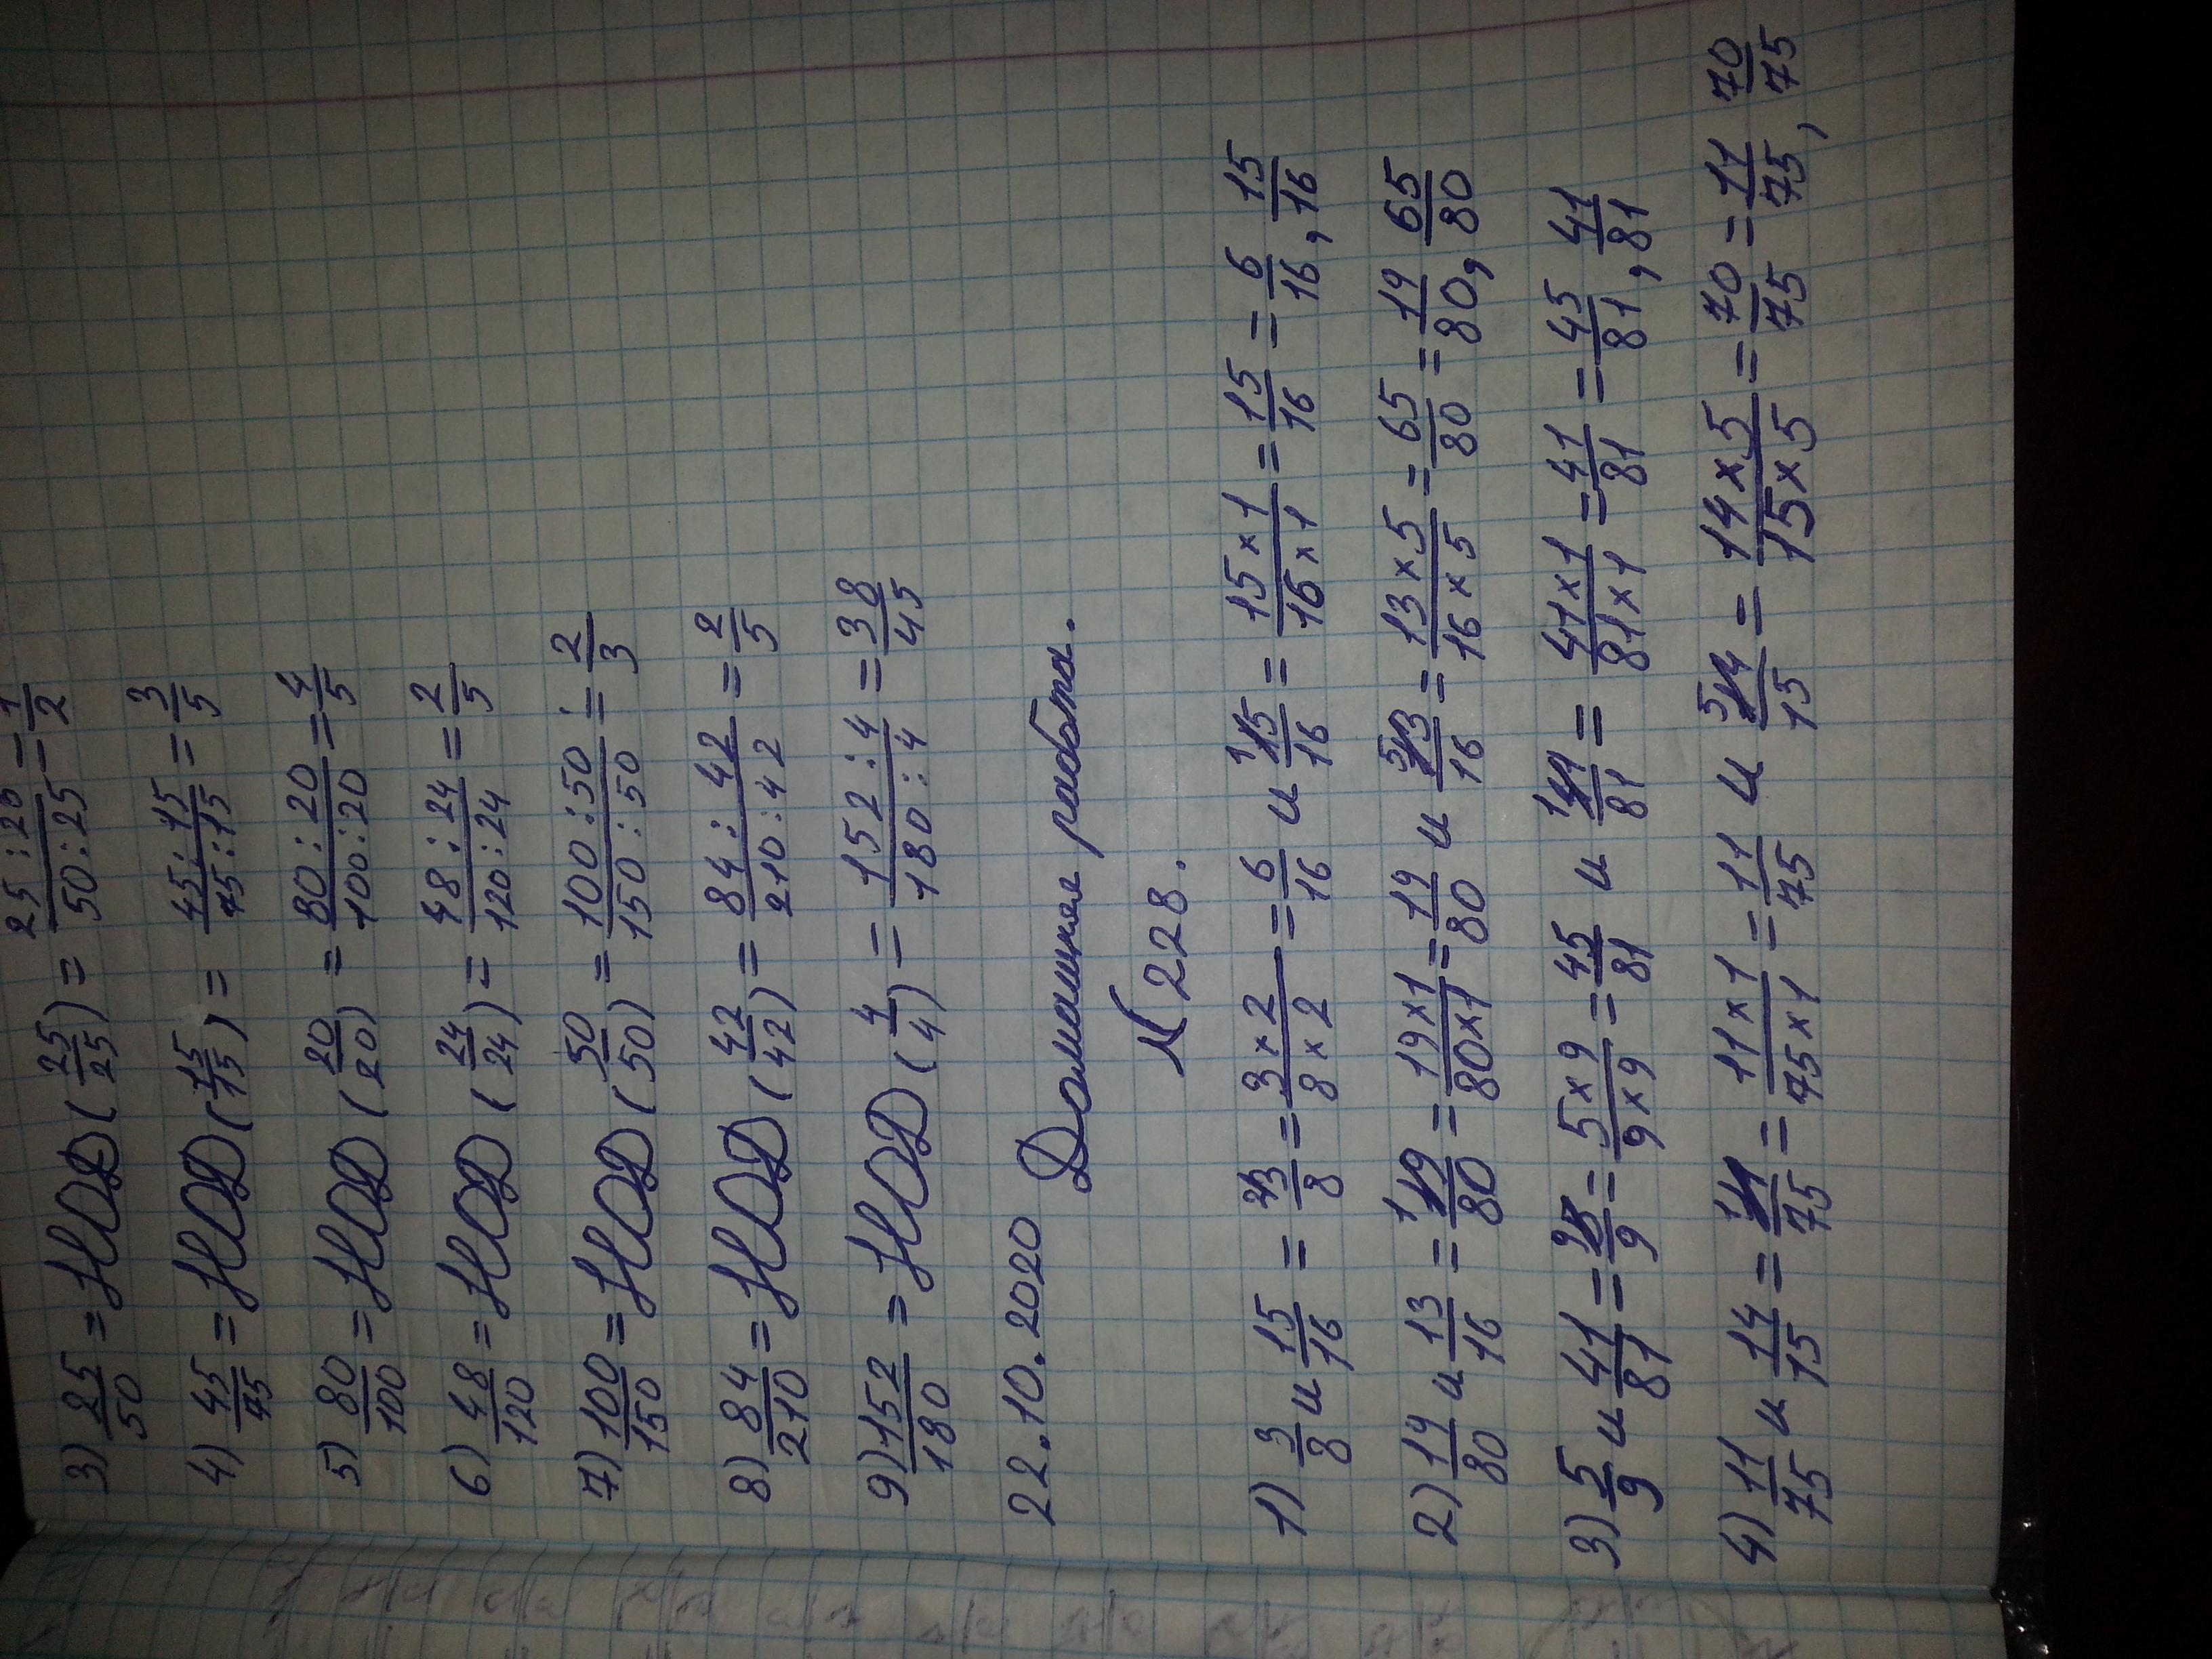 3) 25/50 = НОД (25/25) = 25:25/50:25 = 1/2
4) 45/75 = НОД (15/15) = 45:15/75:15 = 3/5
5) 80/100 = НОД (20/20) = 80:20/100:20 = 4/5
6) 48/120 = НОД (24/24) = 48:24/120:24 = 2/5
7) 100/150 = НОД (50/50) = 100:50/150:50 = 2/3
8) 84/210 = НОД (42/42) = 84:42/210:42 = 2/5
9) 152/180 = НОД (4/4) = 152:4/180:4 = 38/45
22.10.2020 Домашняя работа.
N 228.
1) 3/8 и 15/16 = ²3/8 = 3×2/8×2 = 6/16 и ¹15/16 = 15×1/16×1 = 15/16 = 6/16, 15/16
2) 19/80 и 13/16 = ¹19/80 = 19×1/80×1 = 19/80 и ⁵13/16 = 13×5/16×5 = 65/80 = 19/80, 65/80
3) 5/9 и 41/81 = ⁹5/9 = 5×9/9×9 = 45/81 и ¹41/81 = 41×1/81×1 = 41/81 = 45/81, 41/81
4) 11/75 и 14/15 = ¹11/75 = 11×1/75×1 = 11/75 и ⁵14/15 = 14×5/15×5 = 70/75 = 11/75, 70/75